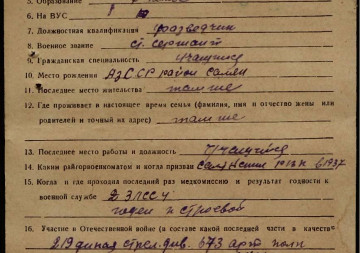 5. Образование
6. На ВУС 8
7. Должностная квалификация разведчик
8. Военное звание ст. сержант
9. Гражданская специальность учащийся
10. Место рождения Аз ССР район
11. Последнее место жительства там же
12. Где проживает в настоящее время семья (фамилия, имя и отчество жены или
родителей и точный их адрес) там же
13. Последнее место работы и должность учащийся
14. Каким райгорвоенкоматом и когда призван РВК в 1937
15. Когда и где проходил последний раз медкомиссию и результат годности к
военной службе 2 ЗЛССП
годен к строевой
16. Участие в Отечественной войне (в составе какой последней части в качестве
стрел. див. 673 арт полк